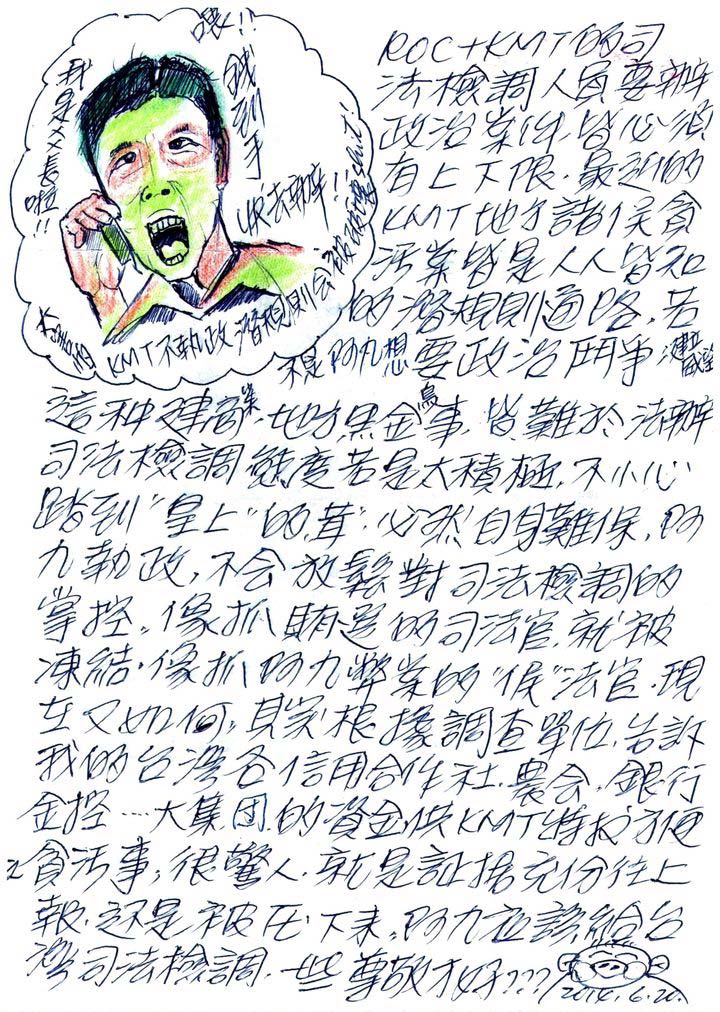 喂!!
錢到手
我是XX長啦!!
收去辦!!
KMT不執政潛規則会
ROC+KMT的司
法檢調人員要辦
政治案件,皆必須
有上下限,最近的
KMT地方諸侯貪
汚案皆是人人皆知
的潛規則通路,若
不是阿九想要政治鬥爭,建立威望
這种建商案,地方黑金鳥事,皆難於法辦
司法檢調態度若是太積極,不小心
踏到"皇上"的茸,必然自身難保,阿
九執政,不会放鬆對司法檢調的
掌控,像抓賄選的司法官,就被
凍結,像抓阿九弊案的"侯"法官,現
在又如何,其实根據調查單位,告訴
我的台灣各信用合作社,農会,銀行
金控…大集団的資金供KMT特权方便
之貪汚事,很驚人,就是証据充份往上
報,还是被压下来,阿九应該給台
灣司法檢調,一些尊敬才好???
2014.6.20.